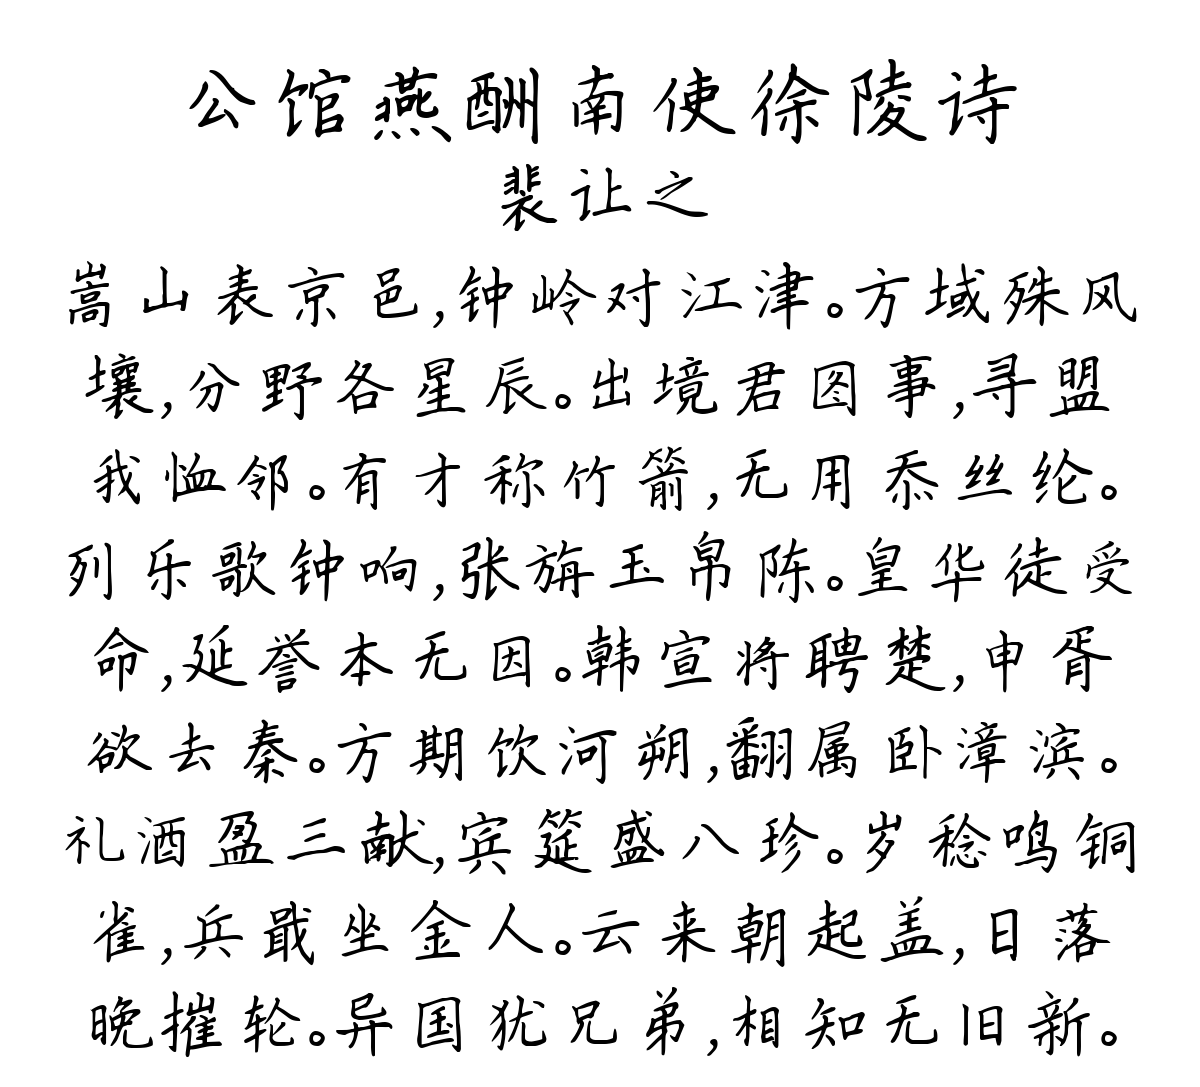 公馆燕酬南使徐陵诗
裴让之
嵩山表京邑,钟岭对江津。方域殊风
壤,分野各星辰。出境君图事,寻盟
我恤邻。有才称竹箭,无用忝丝纶。
列乐歌钟响,张旃玉帛陈。皇华徒受
命,延誉本无因。韩宣将聘楚,申胥
欲去秦。方期饮河朔,翻属卧漳滨。
礼酒盈三献,宾筵盛八珍。岁稔鸣铜
雀,兵戢坐金人。云来朝起盖,日落
晚摧轮。异国犹兄弟,相知无旧新。